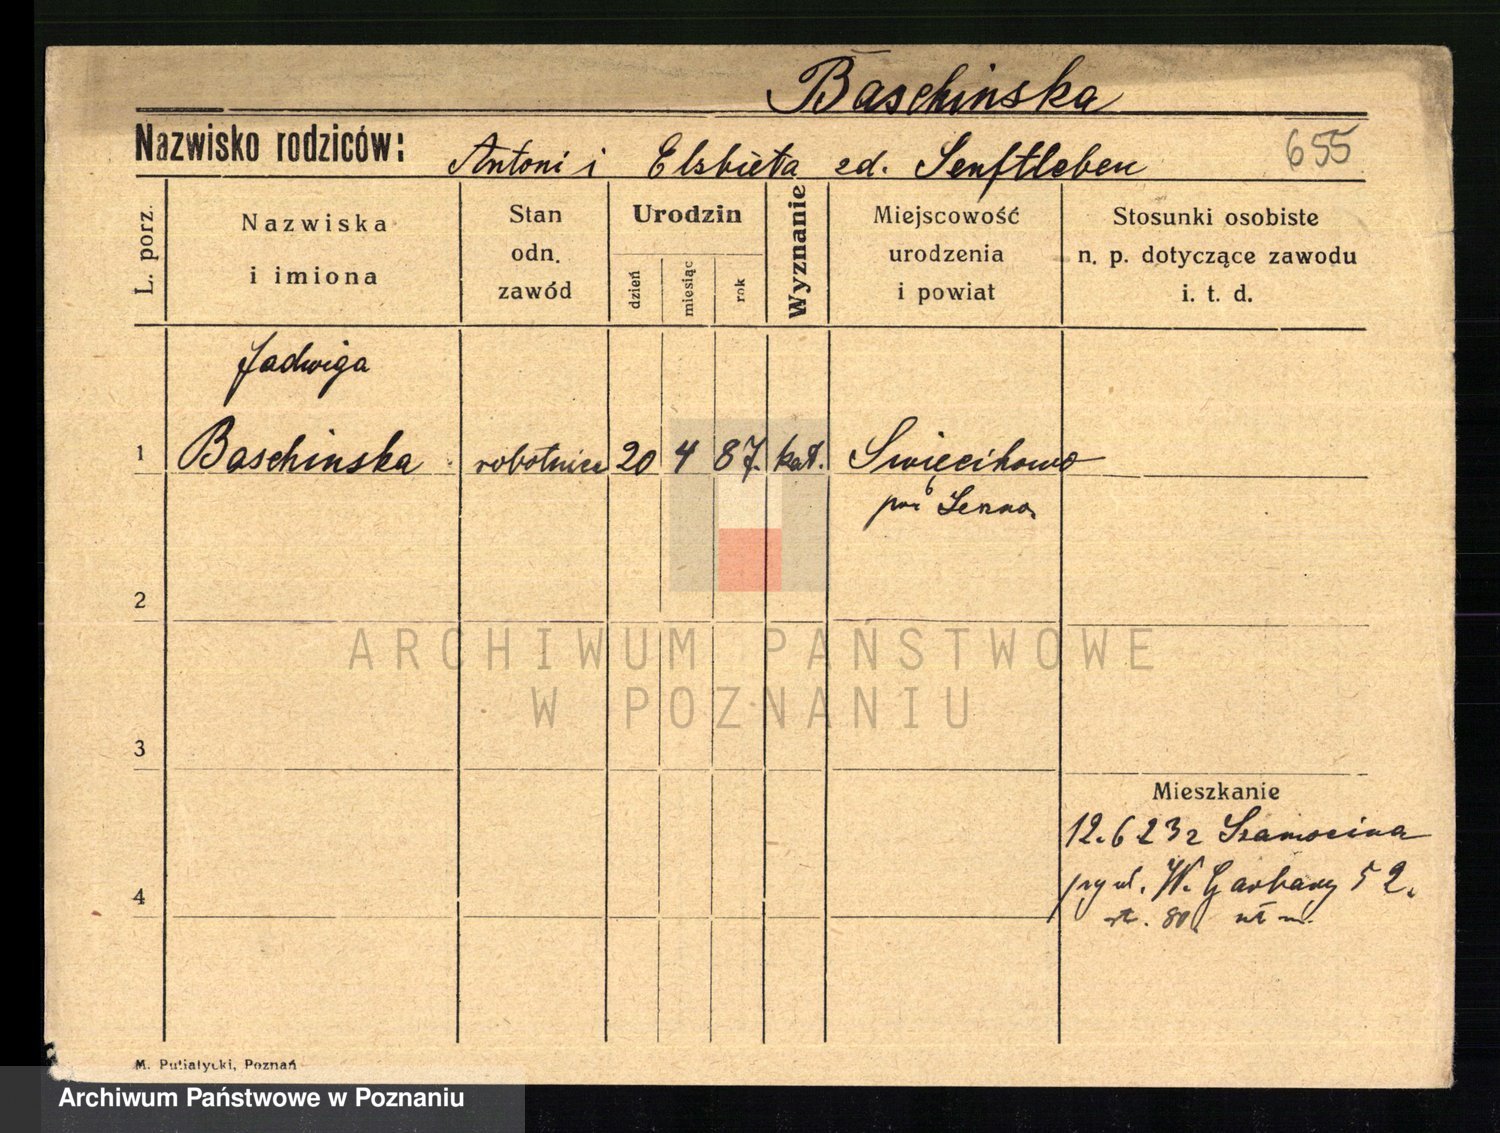 Baschinska
Nazwisko rodziców: Antoni i Elżbieta zd. Senftleben 655
L. porz.
Nazwiska i imiona
Stan odn. zawód
Urodzin
dzień
miesiąc
rok
Wyznanie
Miejscowość urodzenia i powiat
Stosunki osobiste n. p. dotyczące zawodu i. t. d.
Jadwiga
1 Baschinska robotnica 20 4 87. kat. Swięcihowo
2
3
Mieszkanie
12.6 23 z Szamocina
4
W. Garbary 52.
M. Putiatycki, Poznań
ARCHIWUM PAŃSTWOWE
W POZNANIU
Archiwum Państwowe w Poznaniu